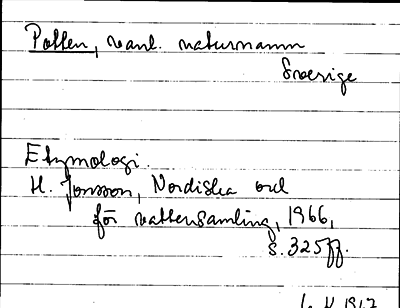 Potten, vanl. naturnamn
Sverige
Etymologi.
H. Jonsson, Nordiska ord
för vattensamling, 1966,
s. 325ff.